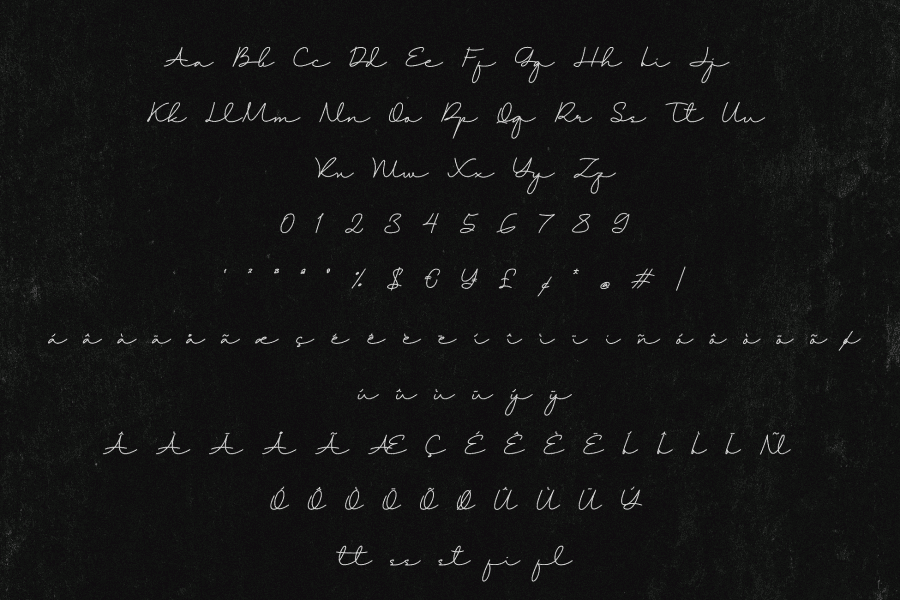 Aa Bb Cc Dd Ee Ff Gg Hh Ii Jj
Kk Ll Mm Nn Oo Pp Qq Rr Ss Tt Uu
Vv Ww Xx Yy Zz
0 1 2 3 4 5 6 7 8 9
' % $ € ¥ £ ¢ * @ # /
á â à ä å ã æ ç é ê è ë í î ì ï ñ ó ô ò ö õ
ú û ù ü ý ÿ
Â À Ä Å Ã Æ Ç É Ê È Ë Í Î Ì Ï Ñ
Ó Ô Ò Ö Õ Ø Û Ù Ü Ý
tt ss st fi fl